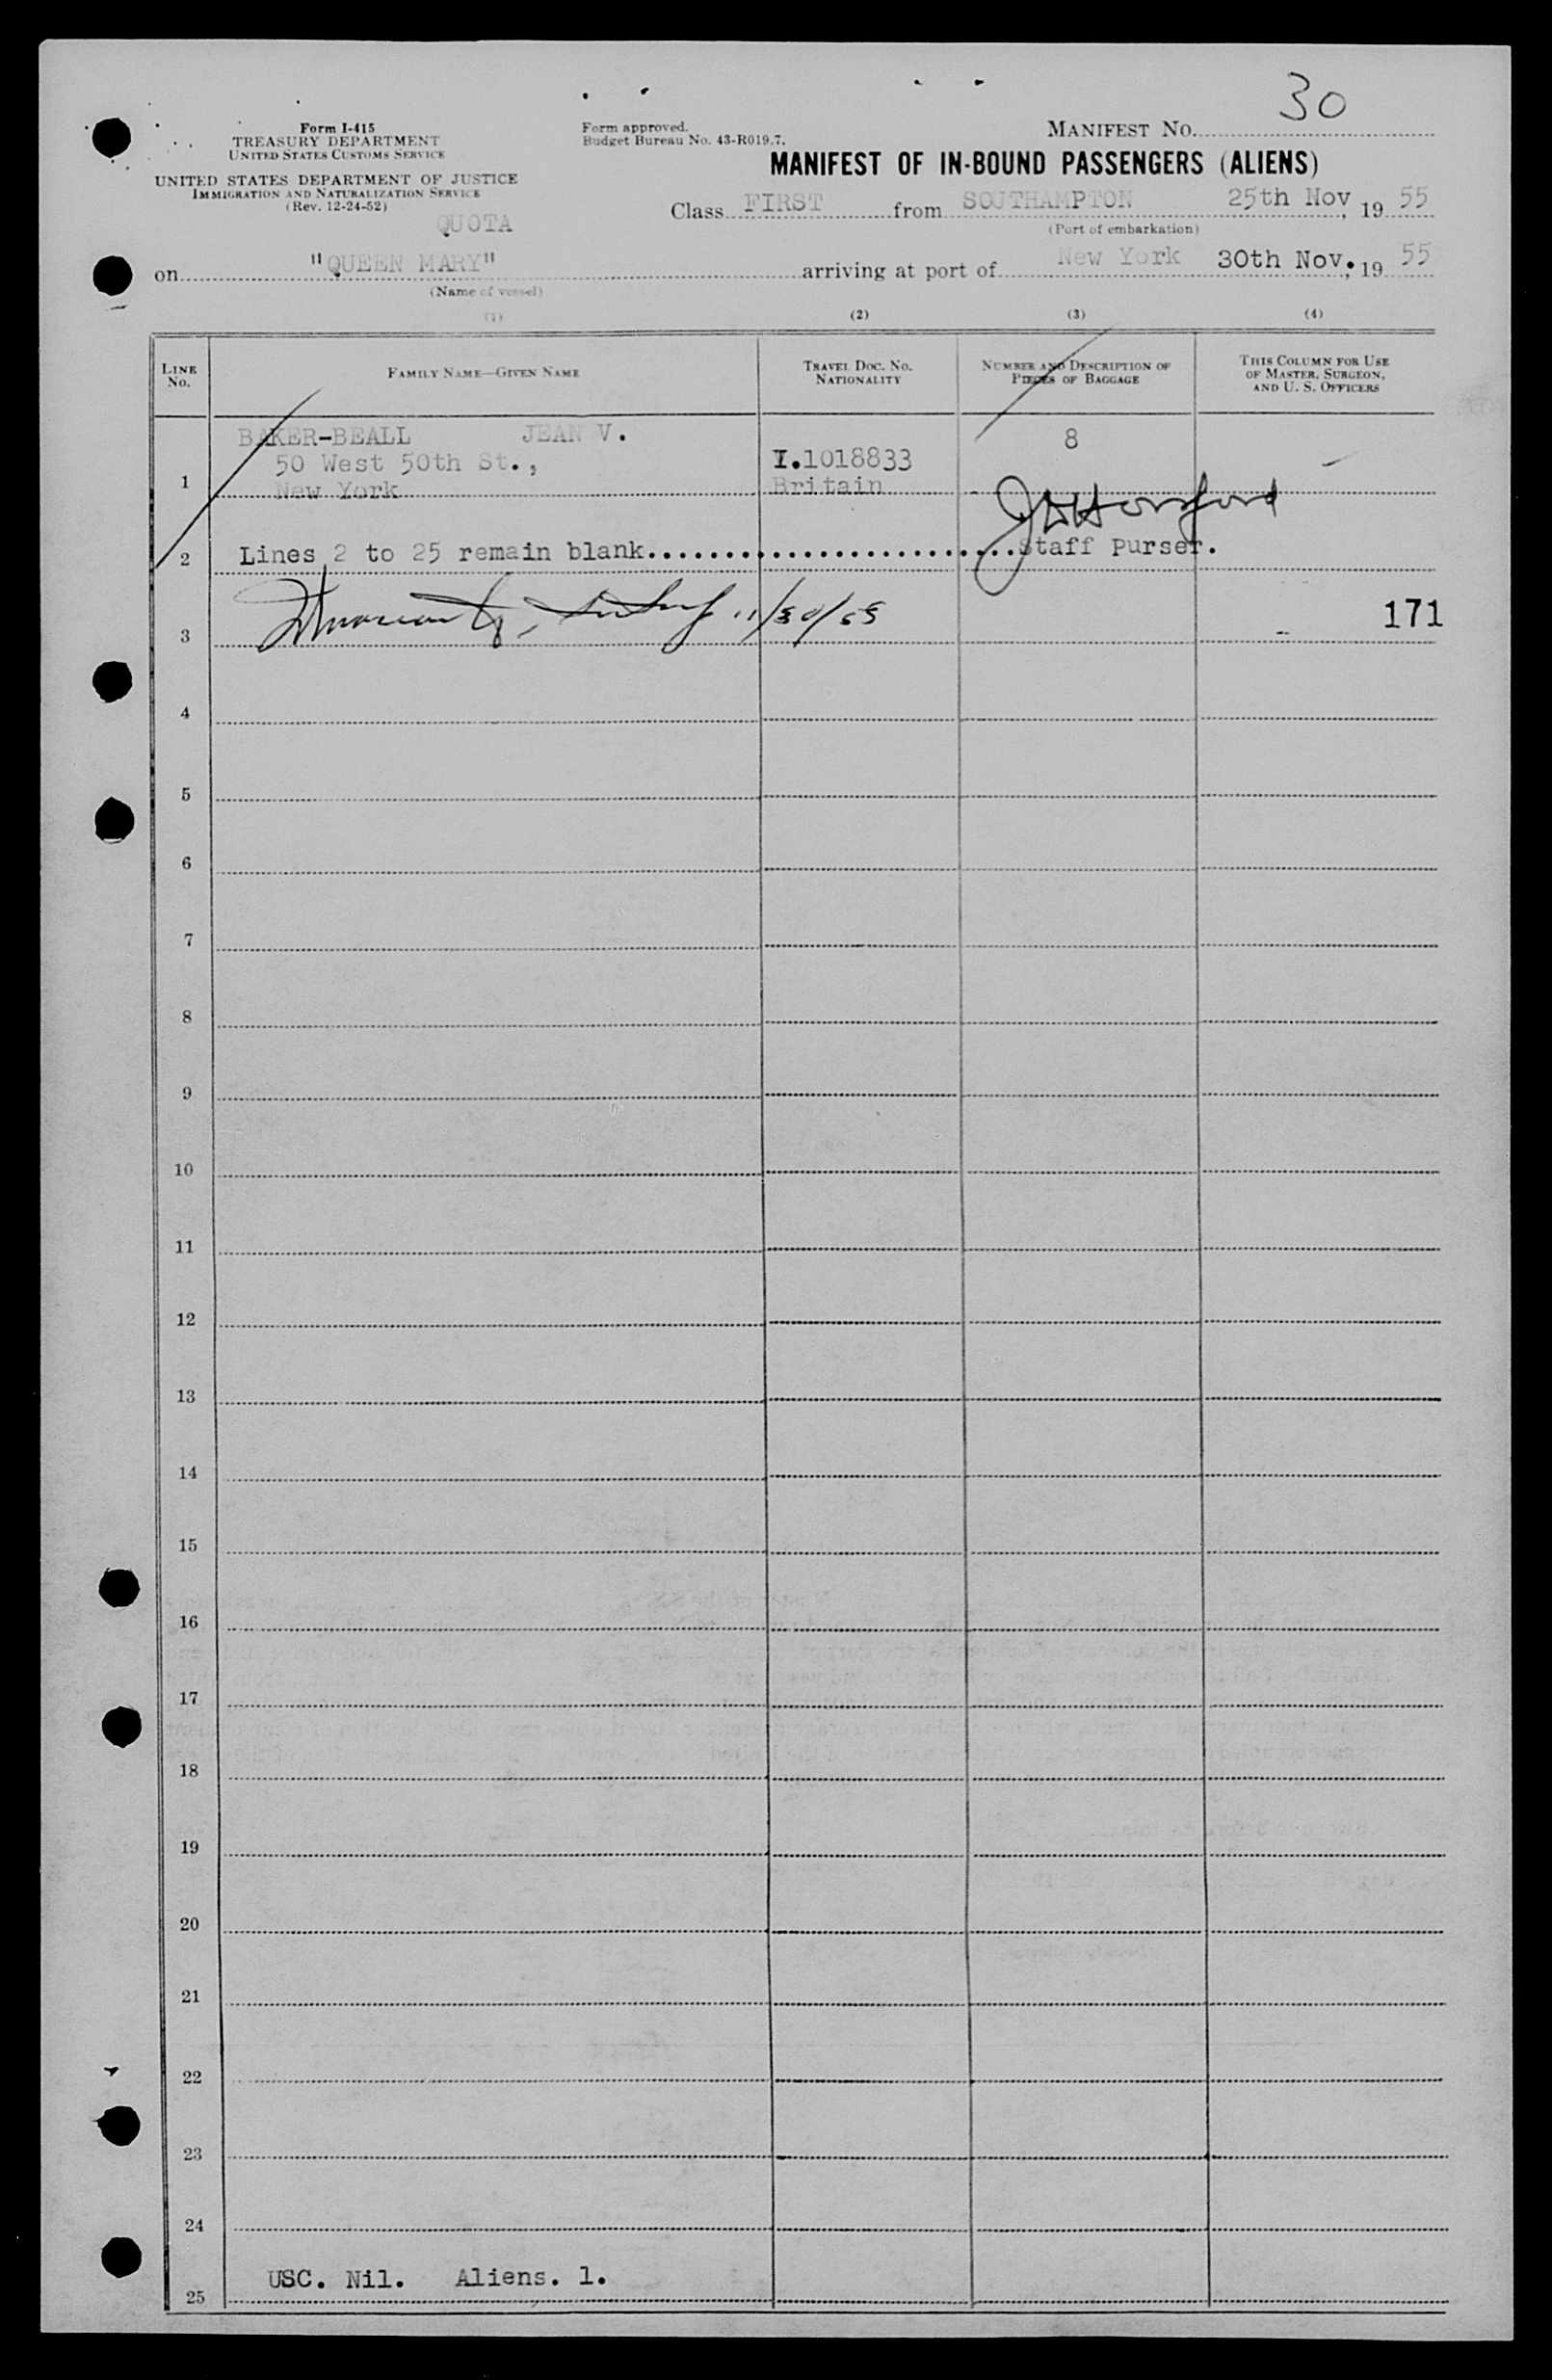 30
Form I-415
TREASURY DEPARTMENT
UNITED STATES CUSTOMS SERVICE
UNITED STATES DEPARTMENT OF JUSTICE
IMMIGRATION AND NATURALIZATION SERVICE
(Rev. 12-24-52)
Form approved.
Budget Bureau No. 43-R019.7.
MANIFEST NO.
MANIFEST OF IN-BOUND PASSENGERS (ALIENS)
Class FIRST from SOUTHAMPTON 25th Nov, 19 55
(Port of embarkation)
QUOTA
on "QUEEN MARY" arriving at port of New York 30th Nov., 19 55
(Name of vessel)
(1) (2) (3) (4)
LINE NO.
FAMILY NAME—GIVEN NAME
TRAVEL DOC. NO. NATIONALITY
NUMBER AND DESCRIPTION OF PIECES OF BAGGAGE
THIS COLUMN FOR USE OF MASTER, SURGEON, AND U. S. OFFICERS
BAKER-BEALL JEAN V. 8
50 West 50th St., I.1018833
1 New York Britain
2 Lines 2 to 25 remain blank..............................Staff Purser.
3 11/30/55 171
4
5
6
7
8
9
10
11
12
13
14
15
16
17
18
19
20
21
22
23
24
USC. Nil. Aliens. 1.
25